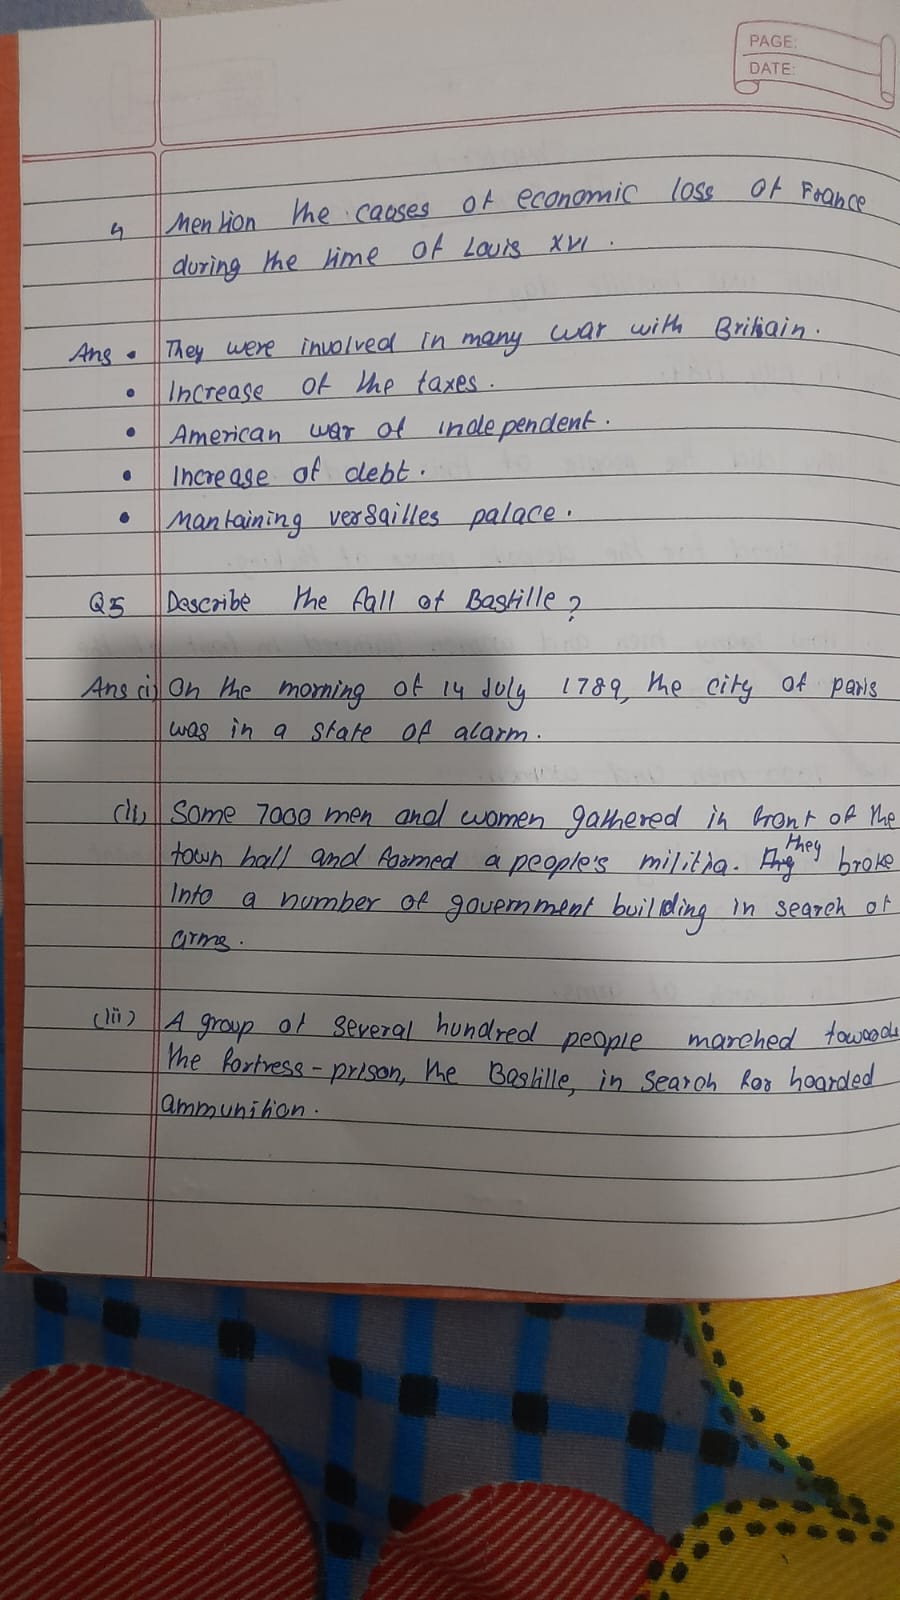 PAGE:
DATE:
4 Mention the causes of economic loss of France
during the time of Louis XVI.
Ans • They were involved in many war with Britiain.
• Increase of the taxes.
• American war of independent.
• Increase of debt.
• Mantaining versailles palace.
Q5 Describe the fall of Bastille?
Ans (i) On the morning of 14 July 1789, the city of paris
was in a state of alarm.
(ii) Some 7000 men and women gathered in front of the
they
town hall and formed a people's militia. broke
Into a number of government building in search of
arms.
(iii) A group of several hundred people marched towards
the fortress - prison, the Bastille, in search for hoarded
ammunition.